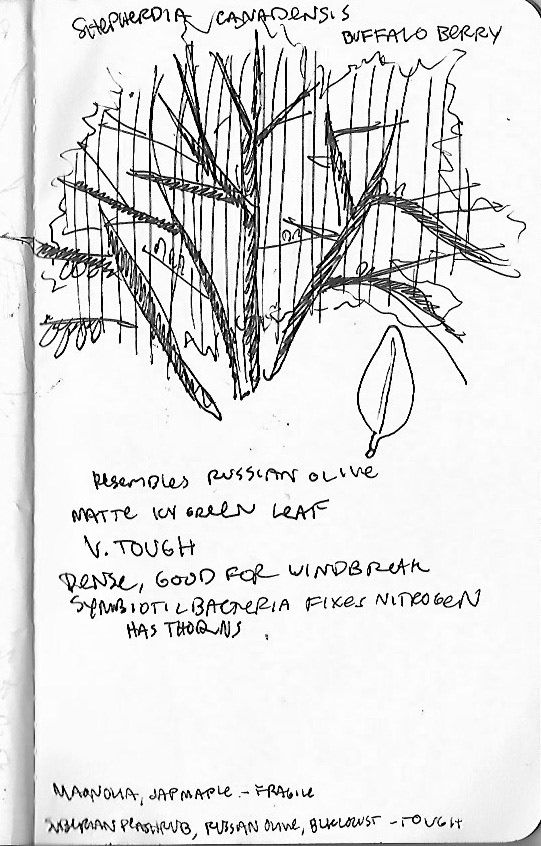 SHEPHERDIA CANADENSIS
BUFFALO BERRY
RESEMBLES RUSSIAN OLIVE
MATTE ICY GREEN LEAF
V. TOUGH
DENSE, GOOD FOR WINDBREAK
SYMBIOTIC BACTERIA FIXES NITROGEN
HAS THORNS.
MAGNOLIA, JAP MAPLE - FRAGILE
SIBERIAN PEASHRUB, RUSSIAN OLIVE, BLK LOCUST - TOUGH